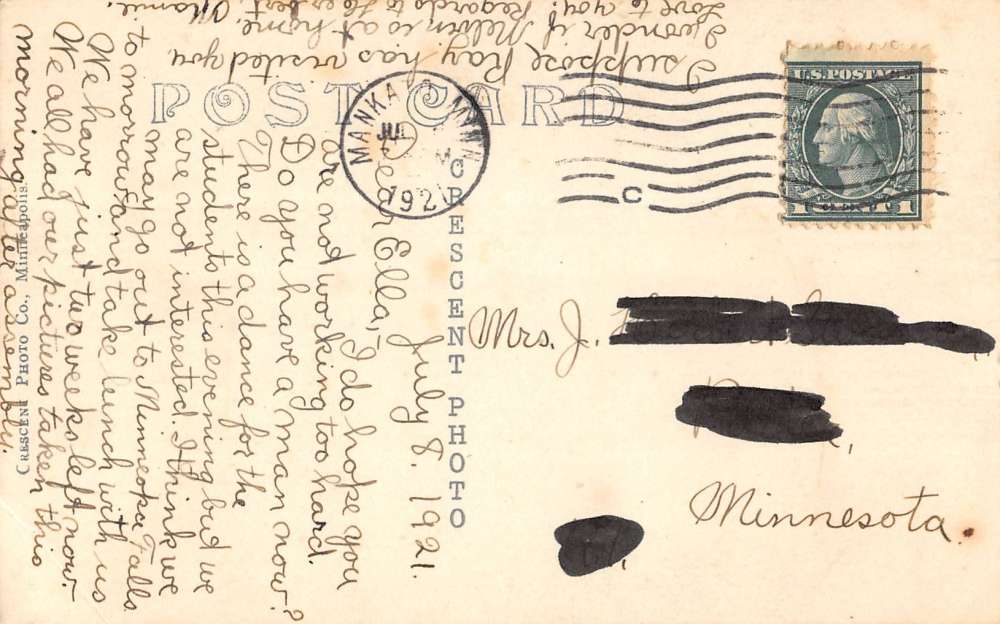 POST CARD
CRESCENT PHOTO
CRESCENT PHOTO CO., Minneapolis.
U.S. POSTAGE
1
1
MANKATO MINN
JUL
1921
C
Mrs. J.
Minnesota.
July 8. 1921.
Dear Ella; I do hope you
are not working too hard.
Do you have a man now?
There is a dance for the
students this evening but we
are not interested. I think we
may go out to Minneopa Falls
to morrow and take lunch with us
We have just two weeks left now.
We all had our pictures taken this
morning after assembly.
I suppose Ray has visited you
I wonder if Melvin is at home
Love to you. Regards to Herbert. Mamie.